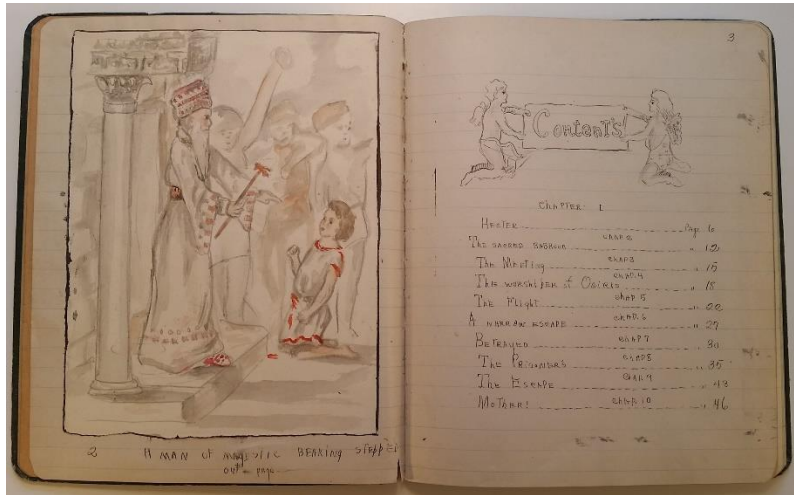 2 A MAN of MAJESTIC BEARING STEPPED
out - page
3
Contents
CHAPTER 1
Hester Page 10
CHAP 2
The SACRED 12
CHAP 3
The Meeting " 15
CHAP. 4
The WORSHIPER of OSIRIS " 18
CHAP 5
The Flight " 22
CHAP. 6
A NARROW ESCAPE " 27
CHAP 7
BETRAYED " 30
CHAP 8
The PRISONERS " 35
CHAP 9
The ESCAPE " 43
CHAP. 10
MOTHER! " 46